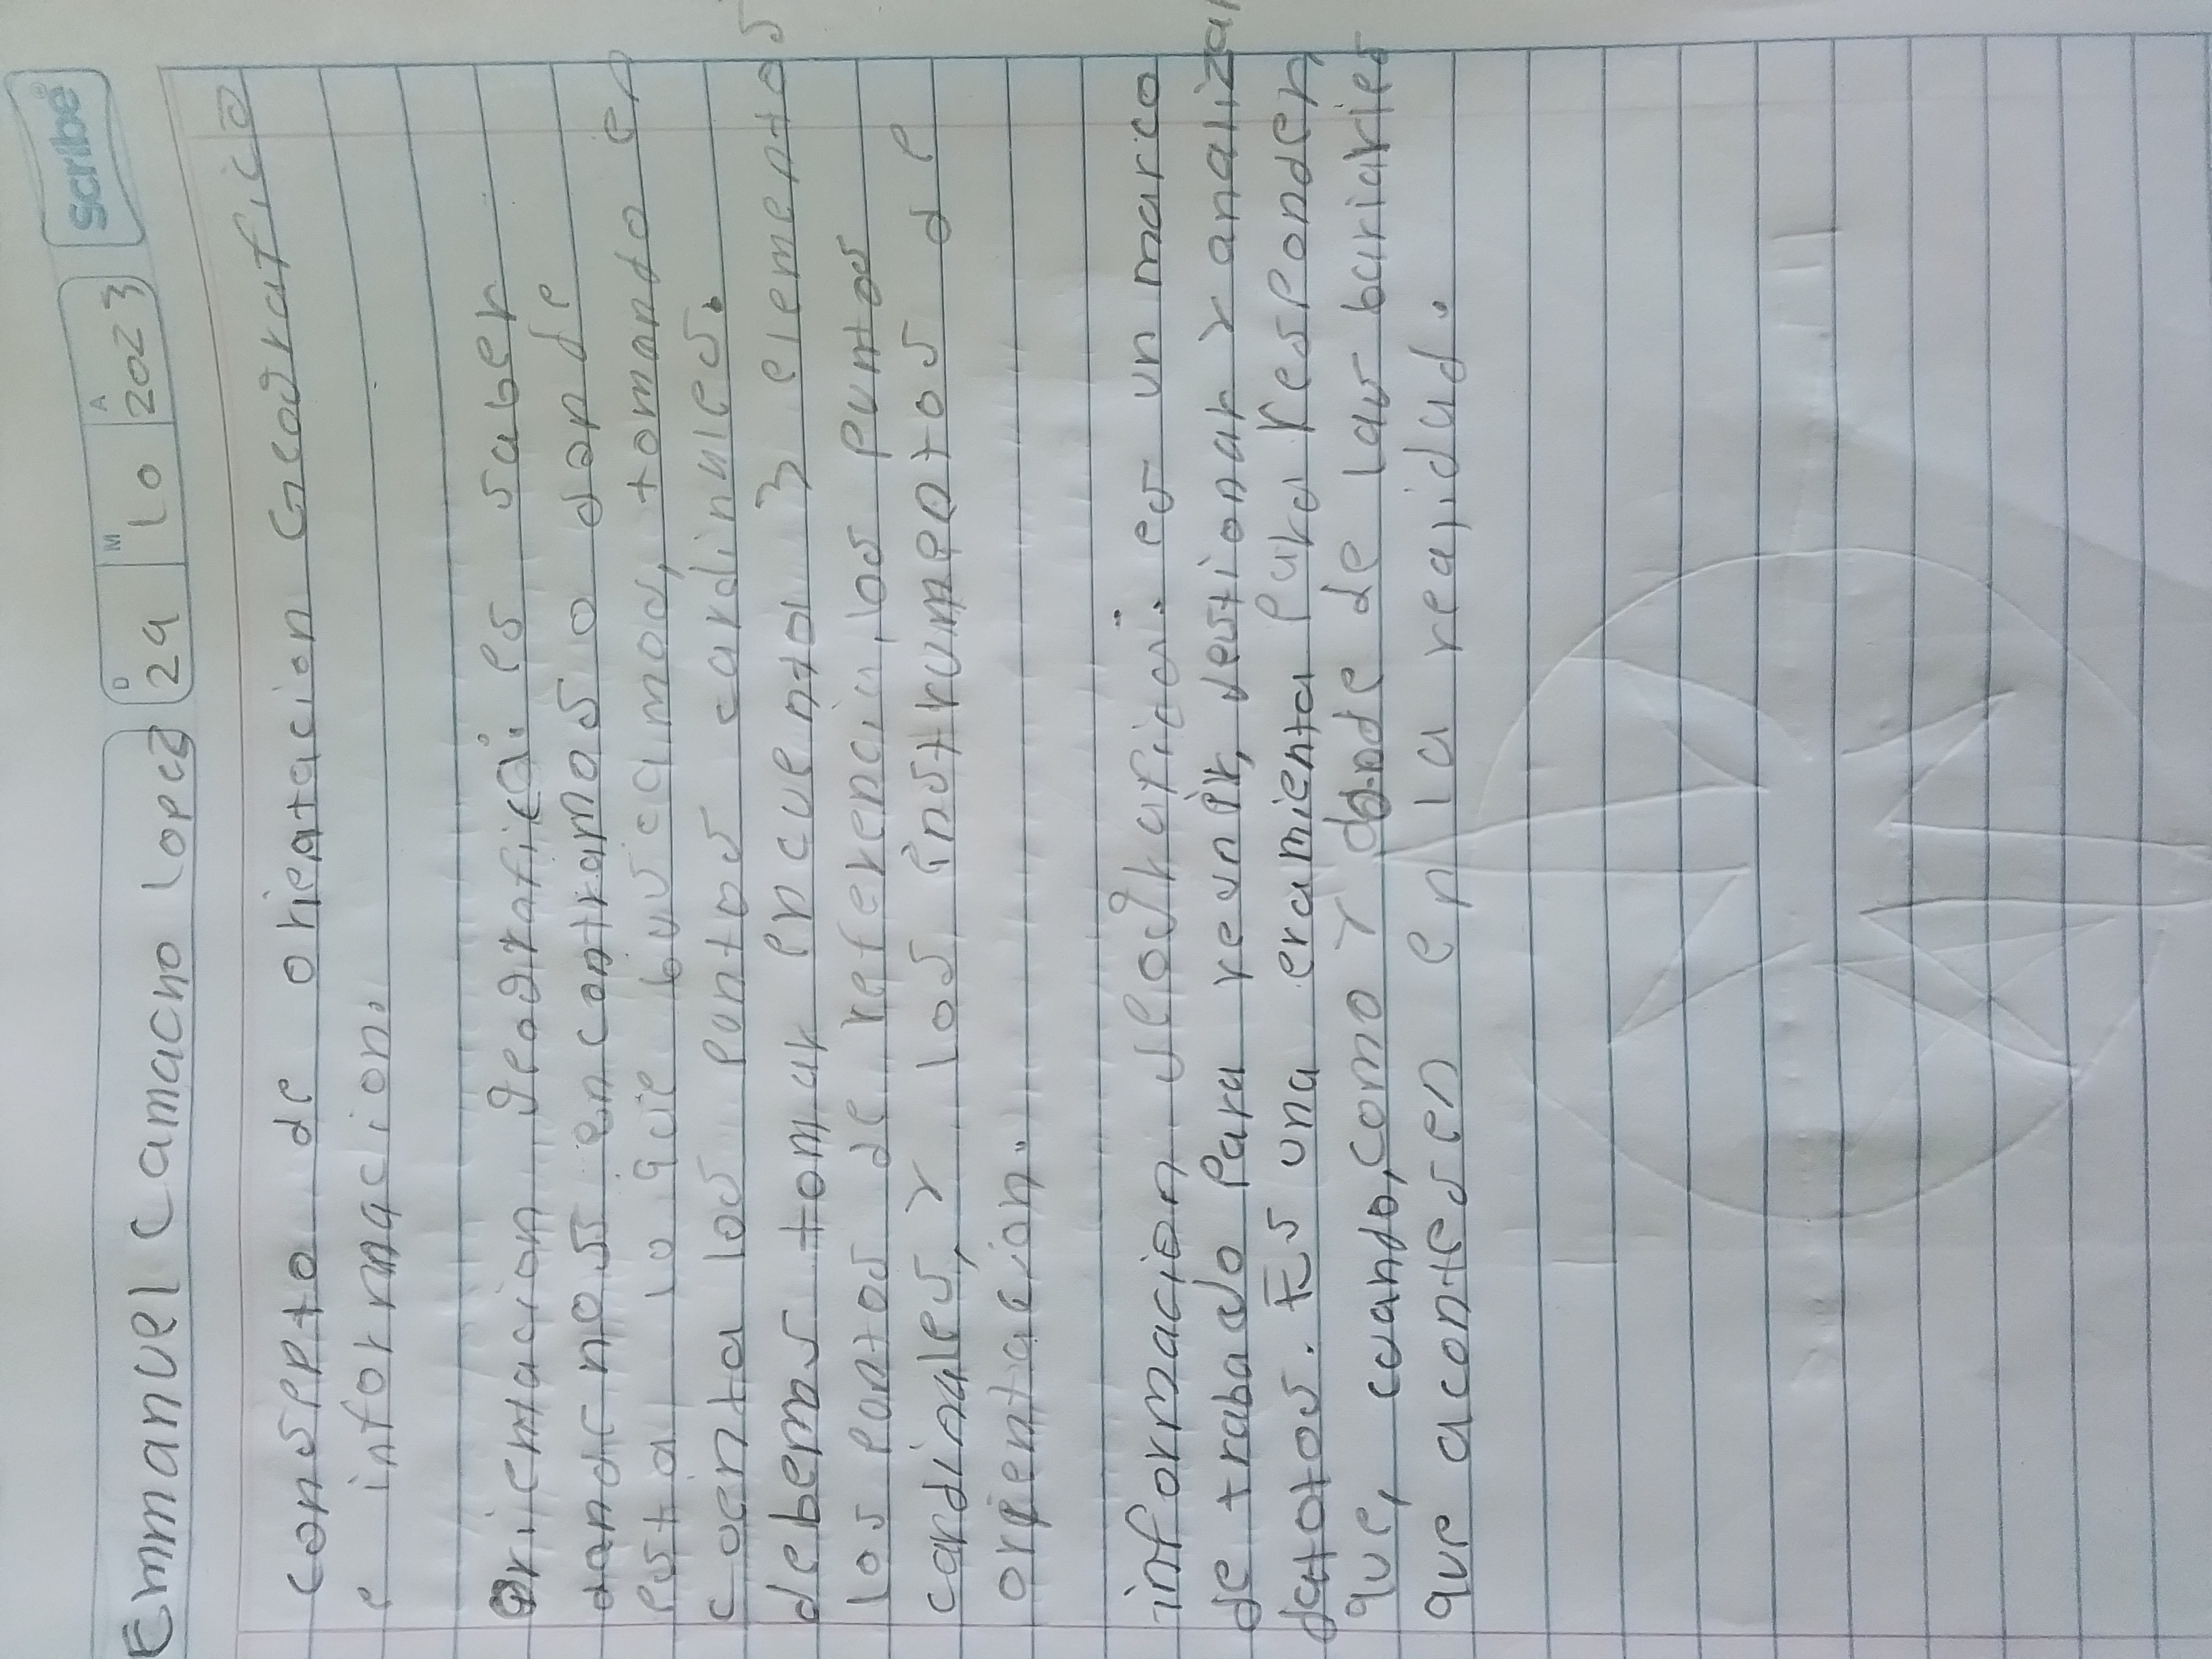 Emmanuel Camacho lopez
D M A
29 10 2023
scribe
consepto de orientacion Geografica
e informacion.
Orientacion geografica: es saber
donde nos encontramos o donde
esta lo que buscamos, tomando en
coenta los puntos cardinales.
debems tomar encuenta 3 elementos
los puntos de referencia, los puntos
cardinales, y los instrumentos de
orientacion.
informacion geografica: es un marco
de trabajo para reunir, gestionar y analizar
datos. Es una eramienta para responder
que, cuando, como y donde de las bariaries
que acontesen en la realidad.